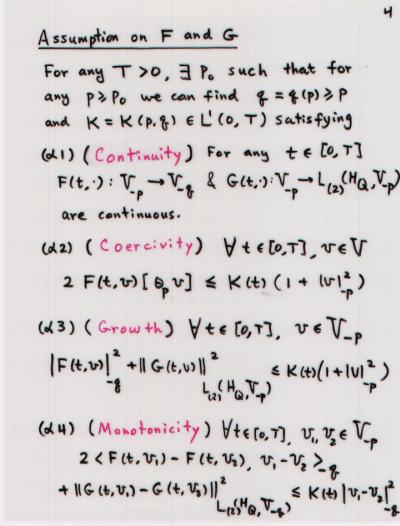 4
Assumption on F and G
For any T > 0, ∃ p₀ such that for
any p ≥ p₀ we can find q = q(p) ≥ p
and K = K(p,q) ∈ L¹(0,T) satisfying
(α1) (Continuity) For any t ∈ [0,T]
F(t,·): V₋ₚ → V₋q & G(t,·): V₋ₚ → L₍₂₎(H_Q, V₋ₚ)
are continuous.
(α2) (Coercivity) ∀ t ∈ [0,T], v ∈ V
2 F(t,v)[θₚ v] ≤ K(t) (1 + |v|²₋ₚ)
(α3) (Growth) ∀ t ∈ [0,T], v ∈ V₋ₚ
|F(t,v)|²₋q + ||G(t,v)||²L₍₂₎(H_Q, V₋ₚ) ≤ K(t)(1+|v|²₋ₚ)
(α4) (Monotonicity) ∀ t ∈ [0,T], v₁, v₂ ∈ V₋ₚ
2 < F(t,v₁) - F(t,v₂), v₁ - v₂ >₋q
+ ||G(t,v₁) - G(t,v₂)||²L₍₂₎(H_Q, V₋q) ≤ K(t) |v₁ - v₂|²₋q